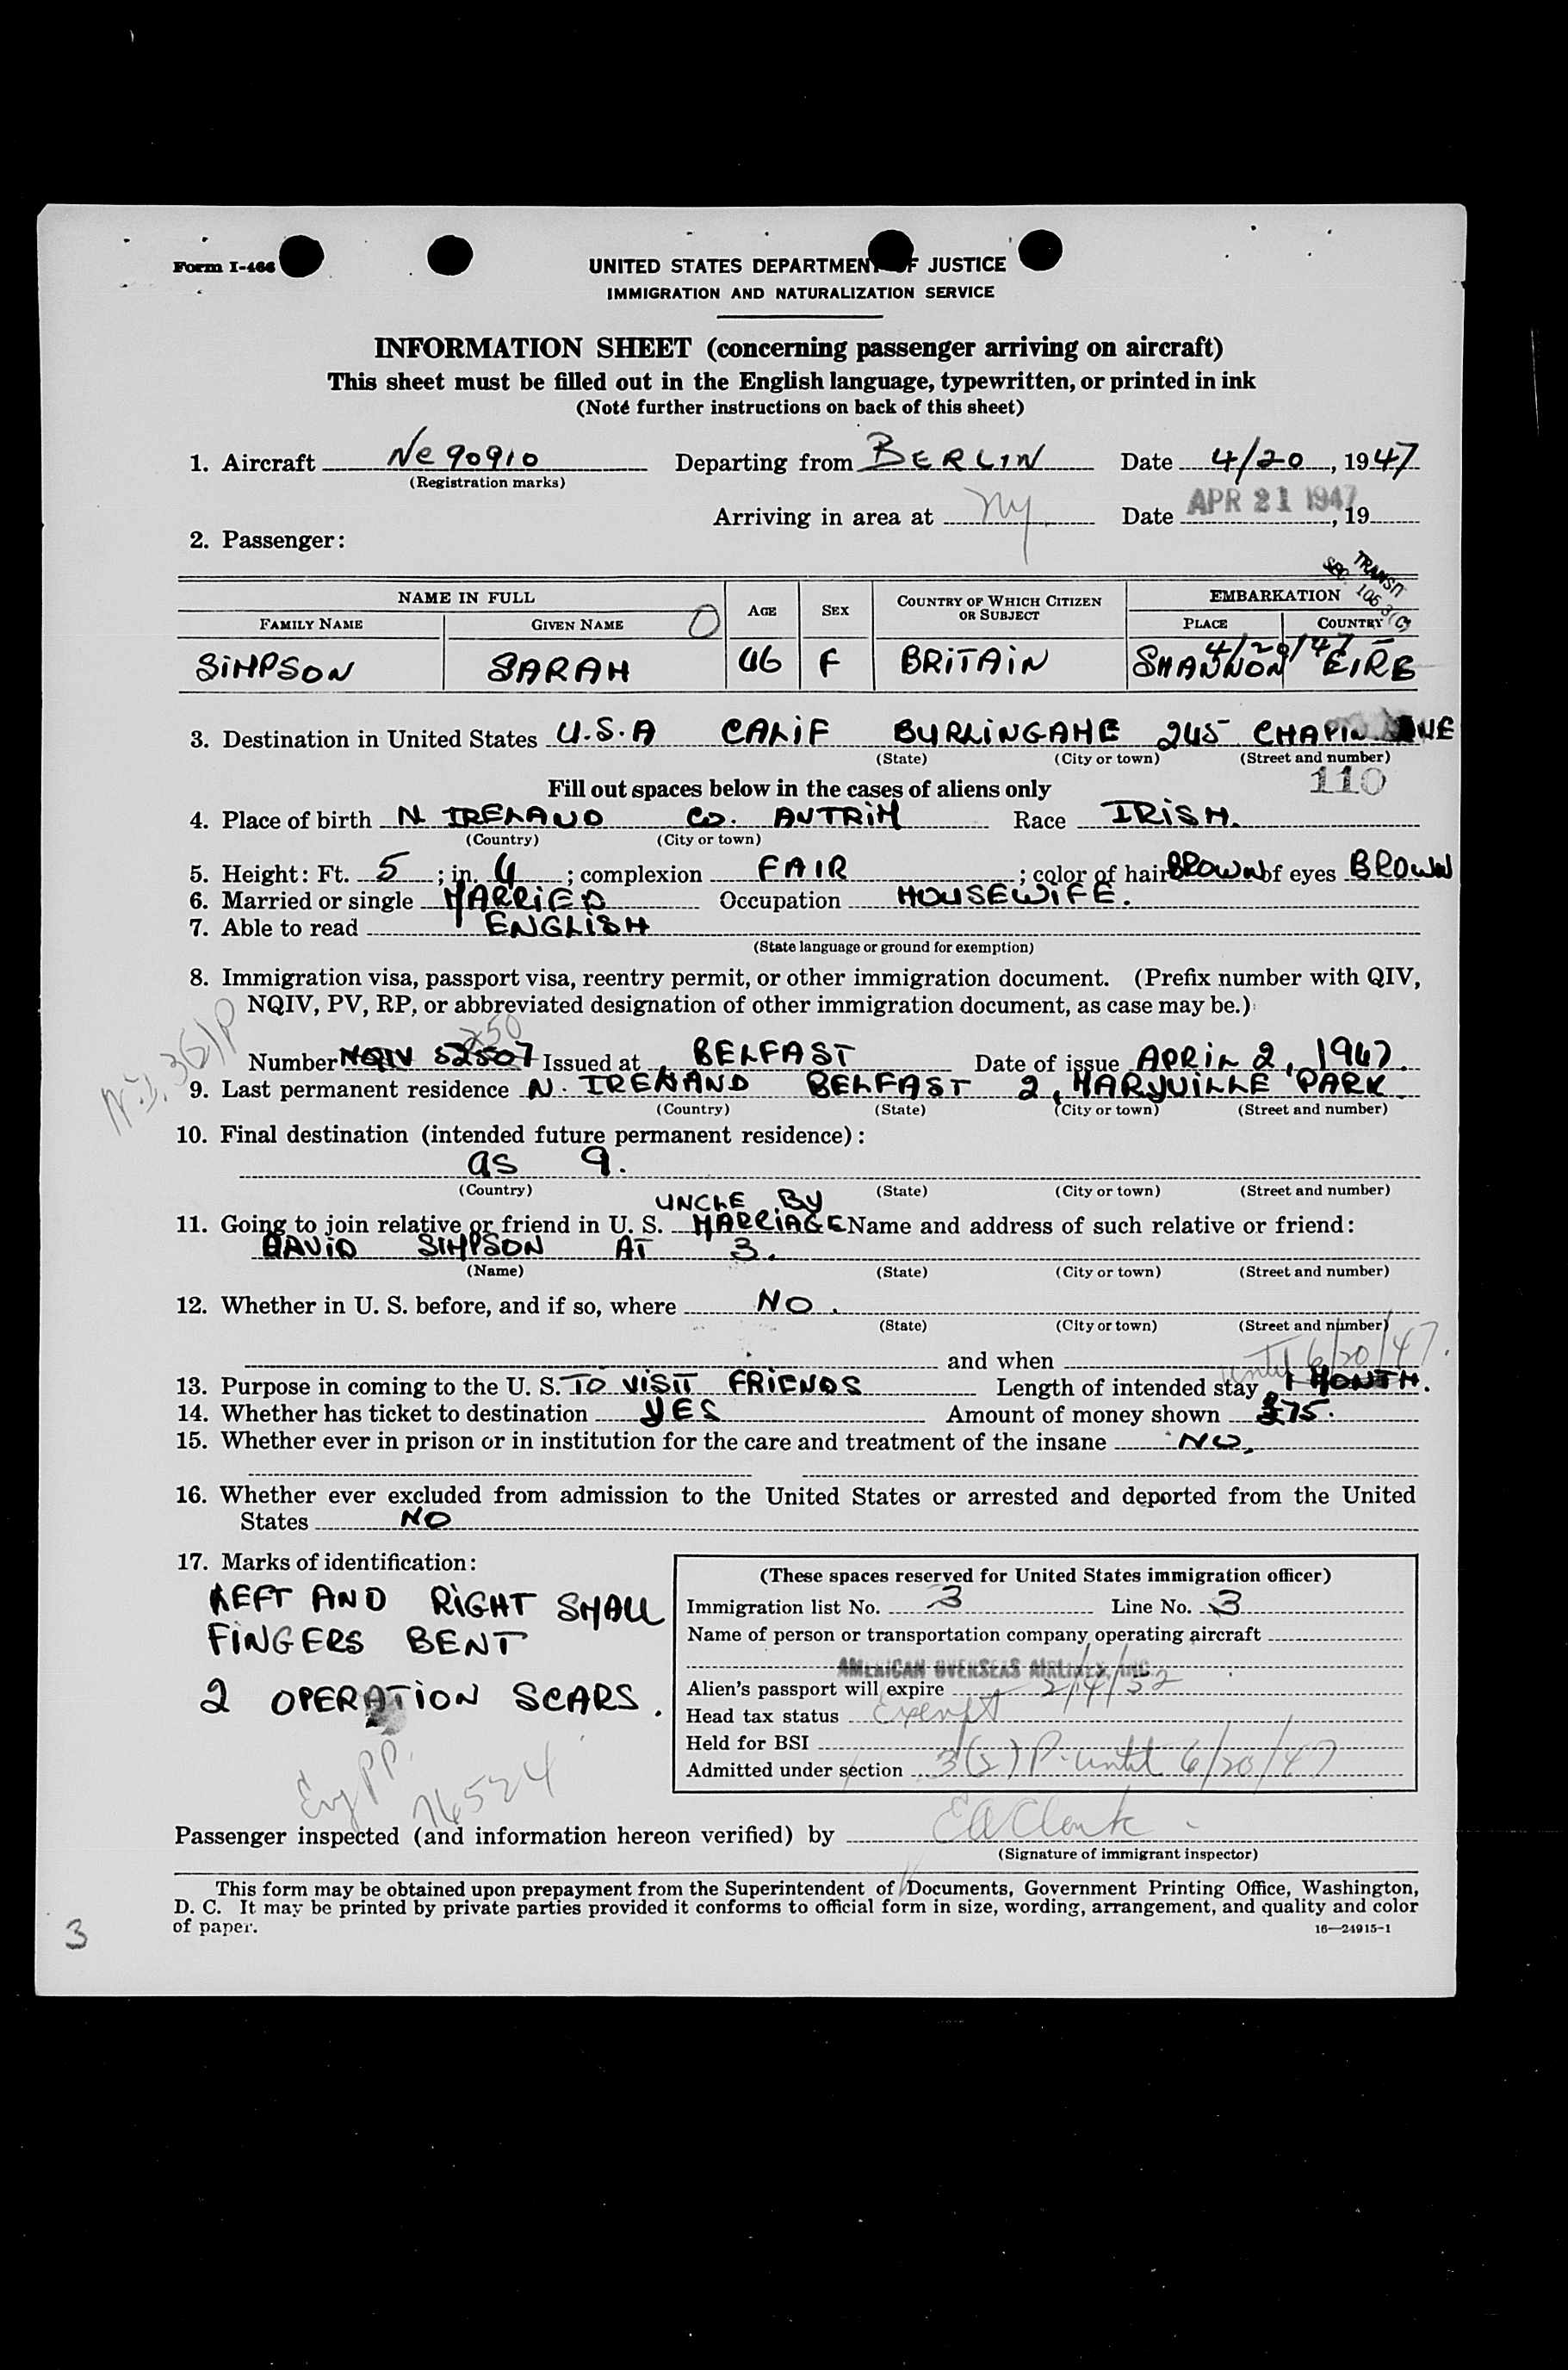 Form I-466
UNITED STATES DEPARTMENT OF JUSTICE
IMMIGRATION AND NATURALIZATION SERVICE
INFORMATION SHEET (concerning passenger arriving on aircraft)
This sheet must be filled out in the English language, typewritten, or printed in ink
(Note further instructions on back of this sheet)
1. Aircraft Nc 90910 Departing from BERLIN Date 4/20, 1947
(Registration marks)
Arriving in area at NY Date APR 21 1947, 19
2. Passenger:
TRANSIT
SEC. 106.3(c)
NAME IN FULL AGE SEX COUNTRY OF WHICH CITIZEN OR SUBJECT EMBARKATION
FAMILY NAME GIVEN NAME O PLACE COUNTRY
4/20/47
SIMPSON SARAH 46 F BRITAIN SHANNON EIRE
3. Destination in United States U.S.A CALIF BURLINGAME 245 CHAPIN
(State) (City or town) (Street and number)
Fill out spaces below in the cases of aliens only 110
4. Place of birth N. IRELAND CO. ANTRIM Race IRISH.
(Country) (City or town)
5. Height: Ft. 5; in. 4; complexion FAIR; color of hair BROWN of eyes BROWN
6. Married or single MARRIED Occupation HOUSEWIFE.
7. Able to read ENGLISH
(State language or ground for exemption)
8. Immigration visa, passport visa, reentry permit, or other immigration document. (Prefix number with QIV,
NQIV, PV, RP, or abbreviated designation of other immigration document, as case may be.)
250
Number NQIV 52507 Issued at BELFAST Date of issue APRIL 2, 1947.
9. Last permanent residence N. IRELAND BELFAST 2, MARYVILLE PARK
(Country) (State) (City or town) (Street and number)
10. Final destination (intended future permanent residence):
as 9.
(Country) (State) (City or town) (Street and number)
UNCLE BY
11. Going to join relative or friend in U. S. MARRIAGE Name and address of such relative or friend:
DAVID SIMPSON AT 3.
(Name) (State) (City or town) (Street and number)
12. Whether in U. S. before, and if so, where NO.
(State) (City or town) (Street and number)
and when
until 6/20/47.
13. Purpose in coming to the U. S. TO VISIT FRIENDS Length of intended stay 1 MONTH.
14. Whether has ticket to destination YES Amount of money shown $75.
15. Whether ever in prison or in institution for the care and treatment of the insane NO.
16. Whether ever excluded from admission to the United States or arrested and deported from the United
States NO
17. Marks of identification:
LEFT AND RIGHT SMALL
FINGERS BENT
2 OPERATION SCARS.
(These spaces reserved for United States immigration officer)
Immigration list No. 3 Line No. 3
Name of person or transportation company operating aircraft
AMERICAN OVERSEAS AIRLINES, INC
Alien's passport will expire 2/4/52
Head tax status Exempt
Held for BSI
Admitted under section 3(2) P. until 6/20/47
76524
Passenger inspected (and information hereon verified) by EA Clark
(Signature of immigrant inspector)
This form may be obtained upon prepayment from the Superintendent of Documents, Government Printing Office, Washington,
D. C. It may be printed by private parties provided it conforms to official form in size, wording, arrangement, and quality and color
of paper. 16—24915-1
3